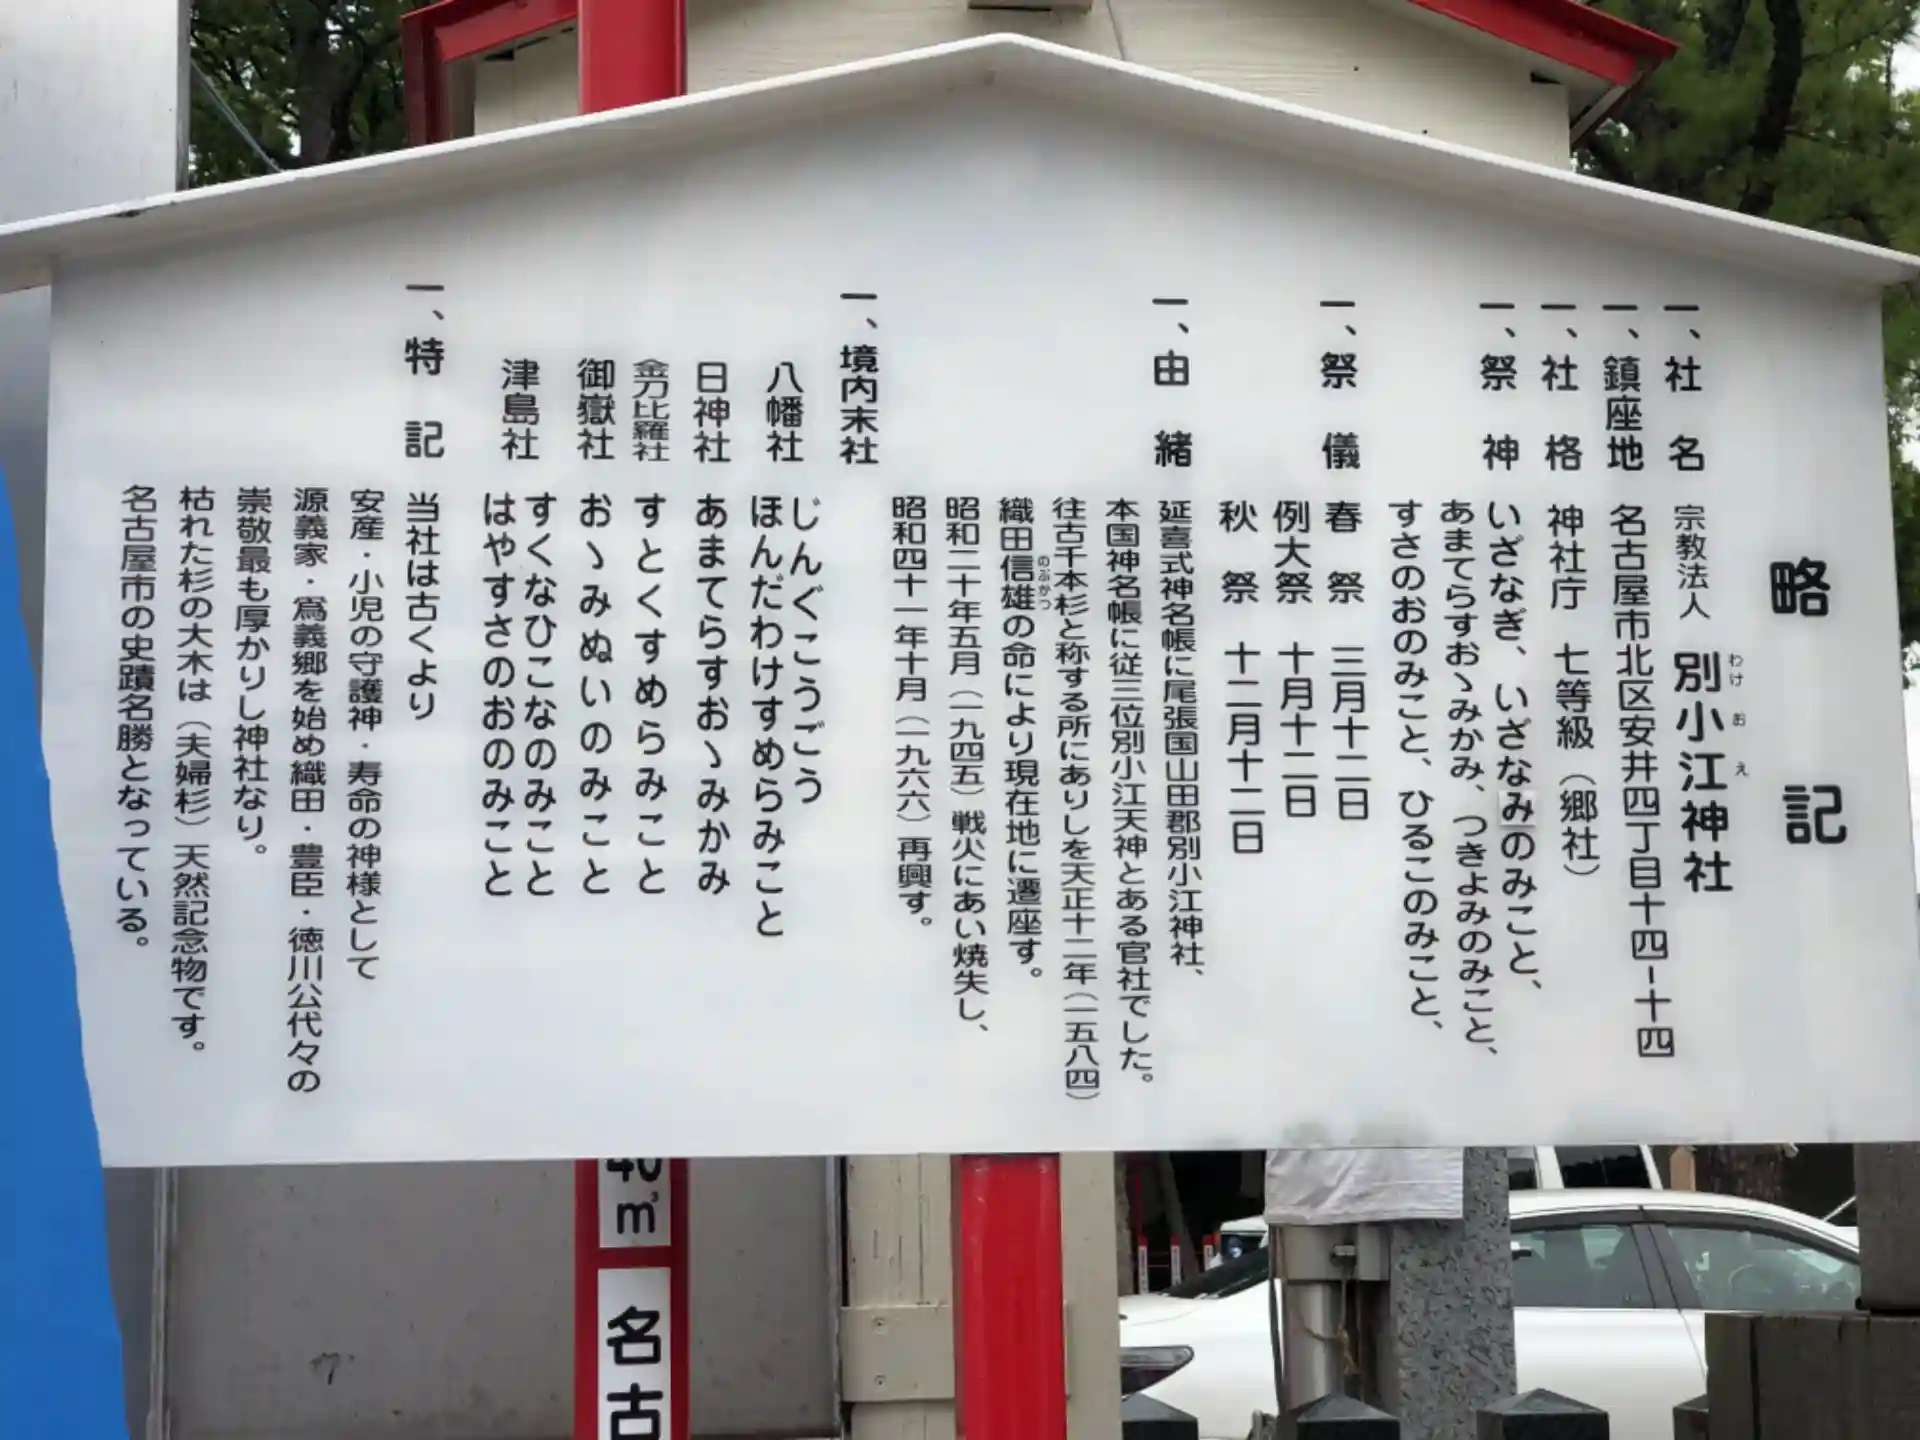 略記
一、社名 宗教法人 別小江神社
わけ お え
一、鎮座地 名古屋市北区安井四丁目十四-十四
一、社格 神社庁 七等級(郷社)
一、祭神 いざなぎ、いざなみのみこと、
あまてらすおゝみかみ、つきよみのみこと、
すさのおのみこと、ひるこのみこと、
一、祭儀 春祭 三月十二日
例大祭 十月十二日
秋祭 十二月十二日
一、由緒 延喜式神名帳に尾張国山田郡別小江神社、
本国神名帳に従三位別小江天神とある官社でした。
往古千本杉と称する所にありしを天正十二年(一五八四)
織田信雄の命により現在地に遷座す。
のぶかつ
昭和二十年五月(一九四五)戦火にあい焼失し、
昭和四十一年十月(一九六六)再興す。
一、境内末社
八幡社 じんぐこうごう
ほんだわけすめらみこと
日神社 あまてらすおゝみかみ
金刀比羅社 すとくすめらみこと
御嶽社 おゝみぬいのみこと
津島社 すくなひこなのみこと
はやすさのおのみこと
一、特記 当社は古くより
安産・小児の守護神・寿命の神様として
源義家・爲義郷を始め織田・豊臣・徳川公代々の
崇敬最も厚かりし神社なり。
枯れた杉の大木は(夫婦杉)天然記念物です。
名古屋市の史蹟名勝となっている。
40
m³
名古